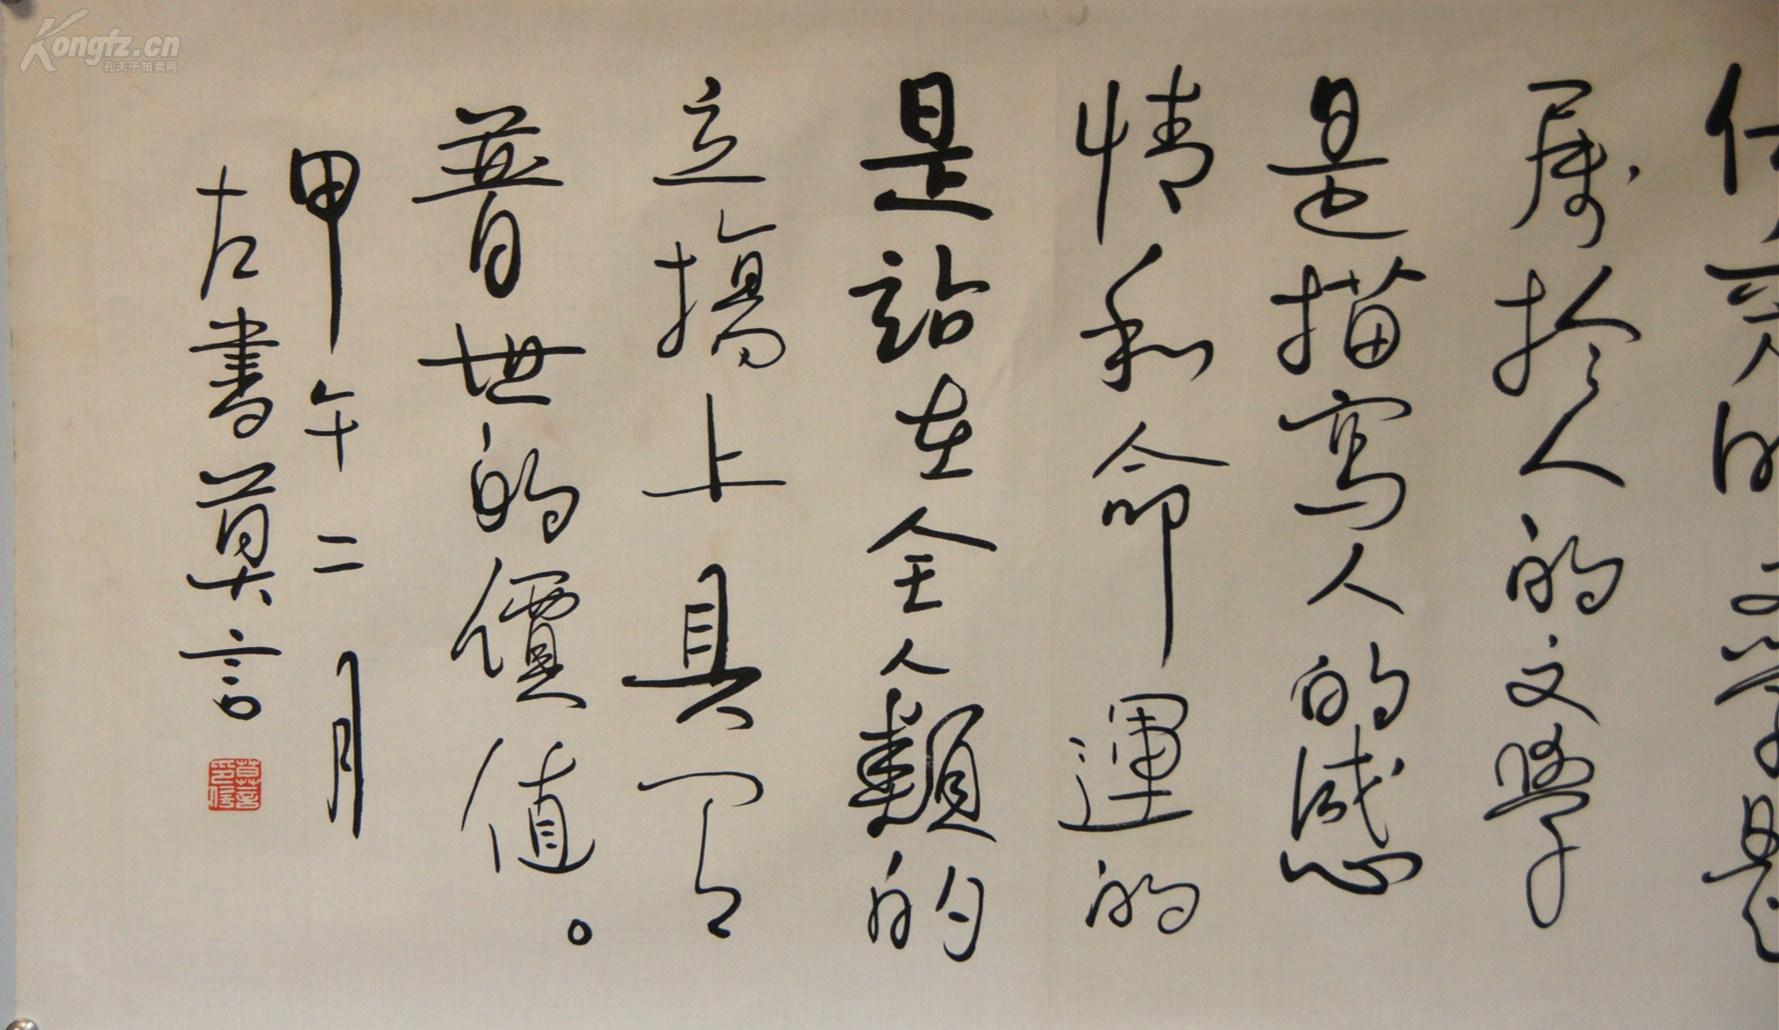 優秀的文學是
屬於人的文學
是描寫人的感
情和命運的
是站在全人類的
立場上具有
普世的價值。
甲午二月
左書莫言
莫言印信
Kongfz.cn
孔夫子拍卖网